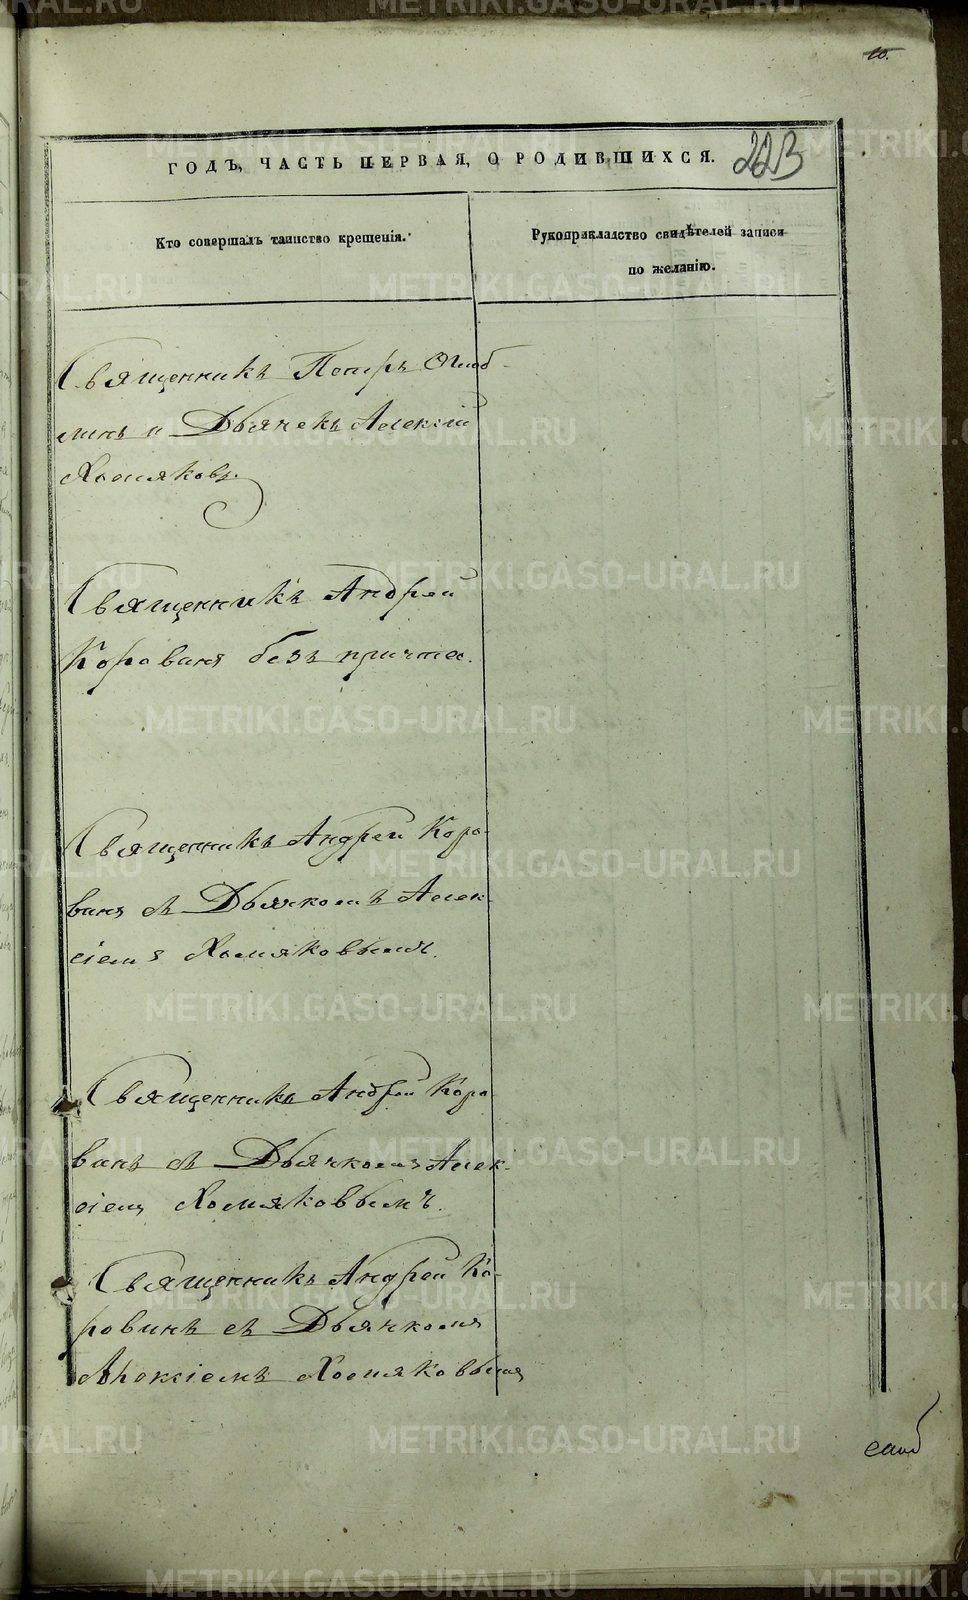 10.
ГОДЪ, ЧАСТЬ ПЕРВАЯ, О РОДИВШИХСЯ.
223
Кто совершалъ таинство крещенія.
Рукоприкладство свидѣтелей записи
по желанію.
Священникъ Петръ Олоб-
линъ и Дьячекъ Алексій
Хомяковъ.
Священникъ Андрей
Коровинъ безъ причта.
Священникъ Андрей Коро-
винъ съ Дьячкомъ Алек-
сіемъ Хомяковымъ.
Священникъ Андрей Коро
винъ съ Дьячкомъ Алек-
сіемъ Хомяковымъ.
Священникъ Андрей Ко-
ровинъ съ Дьячкомъ
Алексіемъ Хомяковымъ
METRIKI.GASO-URAL.RU